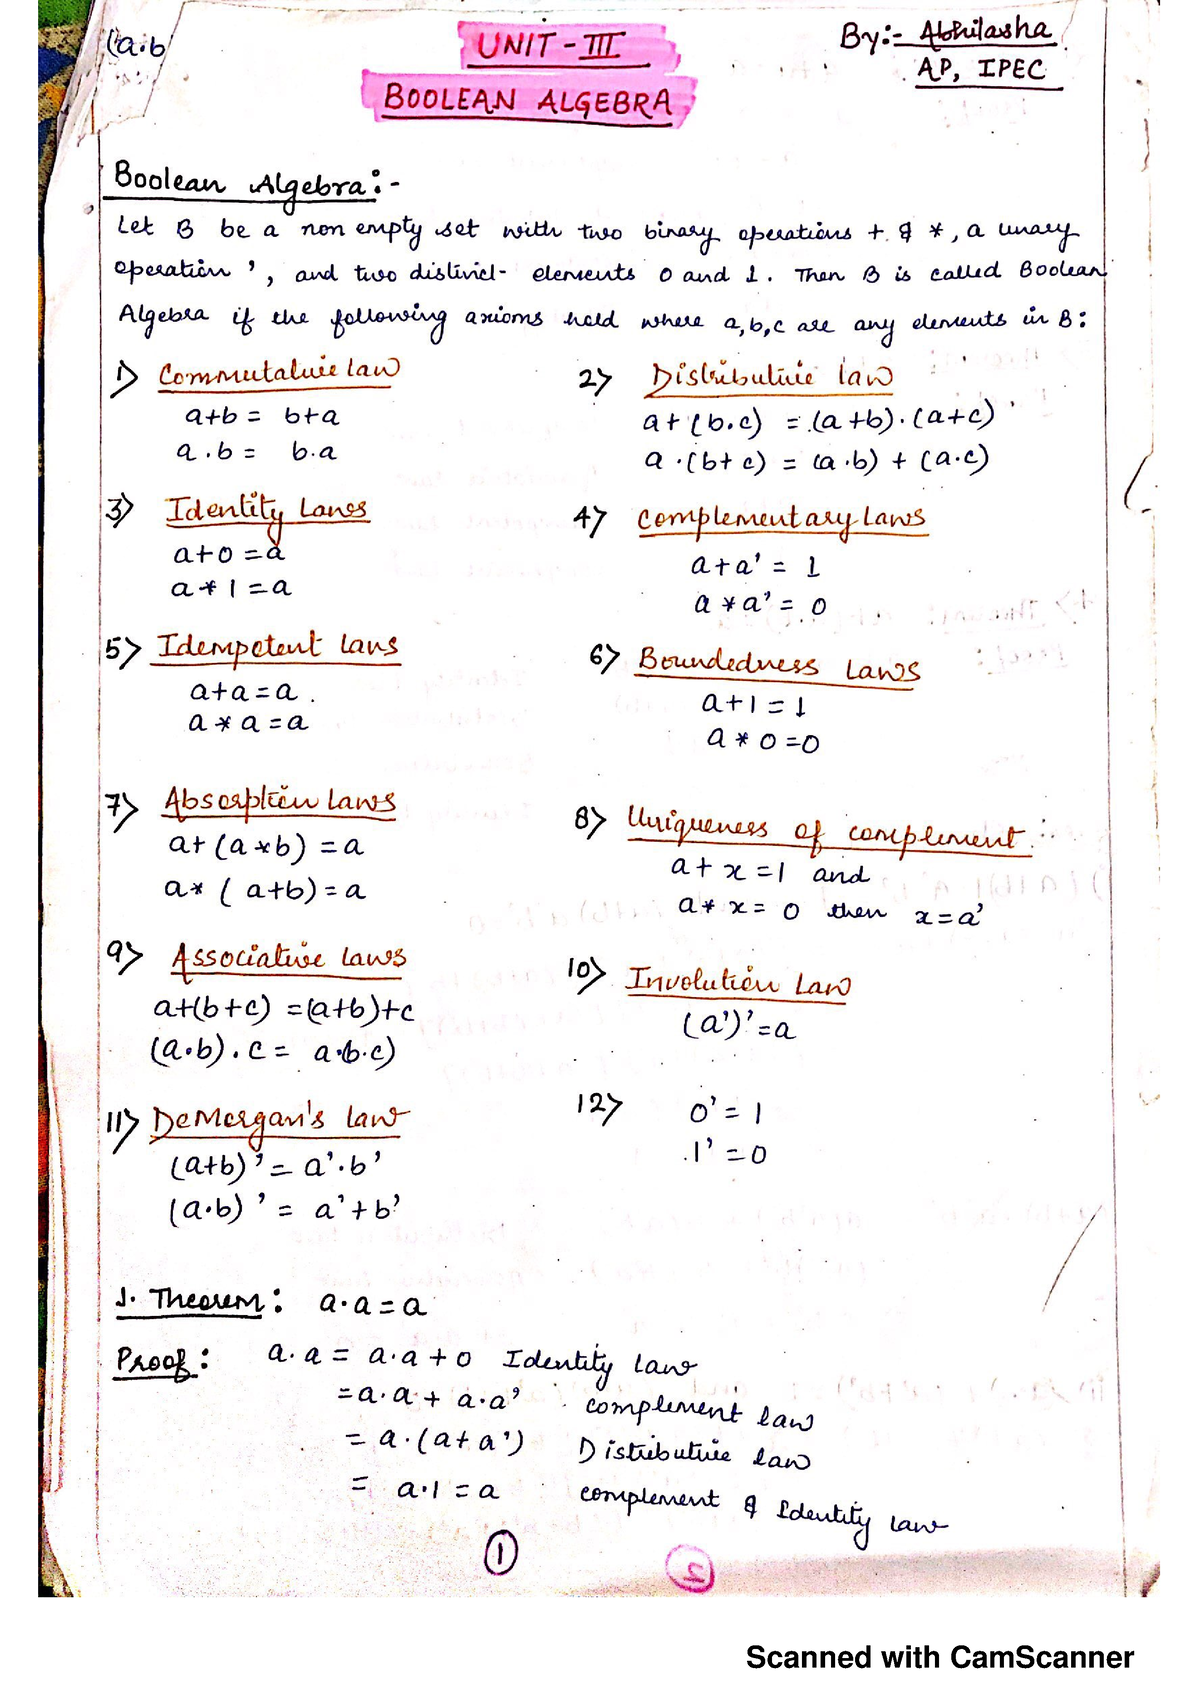 (a.b
UNIT - III
By:- Abhilasha
AP, IPEC
BOOLEAN ALGEBRA
Boolean Algebra:-
Let B be a non empty set with two binary operations + & *, a unary
operation ', and two distinct elements 0 and 1. Then B is called Boolean
Algebra if the following axioms hold where a,b,c are any elements in B:
1) Commutative law
a+b = b+a
a.b = b.a
2) Distributive law
a+(b.c) = (a+b).(a+c)
a.(b+c) = (a.b) + (a.c)
3) Identity Laws
a+0 = a
a*1 = a
4) Complementary Laws
a+a' = 1
a*a' = 0
5) Idempotent laws
a+a = a.
a*a = a
6) Boundedness Laws
a+1 = 1
a*0 = 0
7) Absorption Laws
a+(a*b) = a
a*(a+b) = a
8) Uniqueness of complement
a+x = 1 and
a*x = 0 then x = a'
9) Associative Laws
a+(b+c) = (a+b)+c
(a.b).c = a.(b.c)
10) Involution Law
(a')' = a
11) DeMorgan's law
(a+b)' = a'.b'
(a.b)' = a'+b'
12) 0' = 1
1' = 0
1. Theorem: a.a = a
Proof: a.a = a.a + 0 Identity law
= a.a + a.a' complement law
= a.(a+a') Distributive law
= a.1 = a complement & Identity law
1
2
Scanned with CamScanner